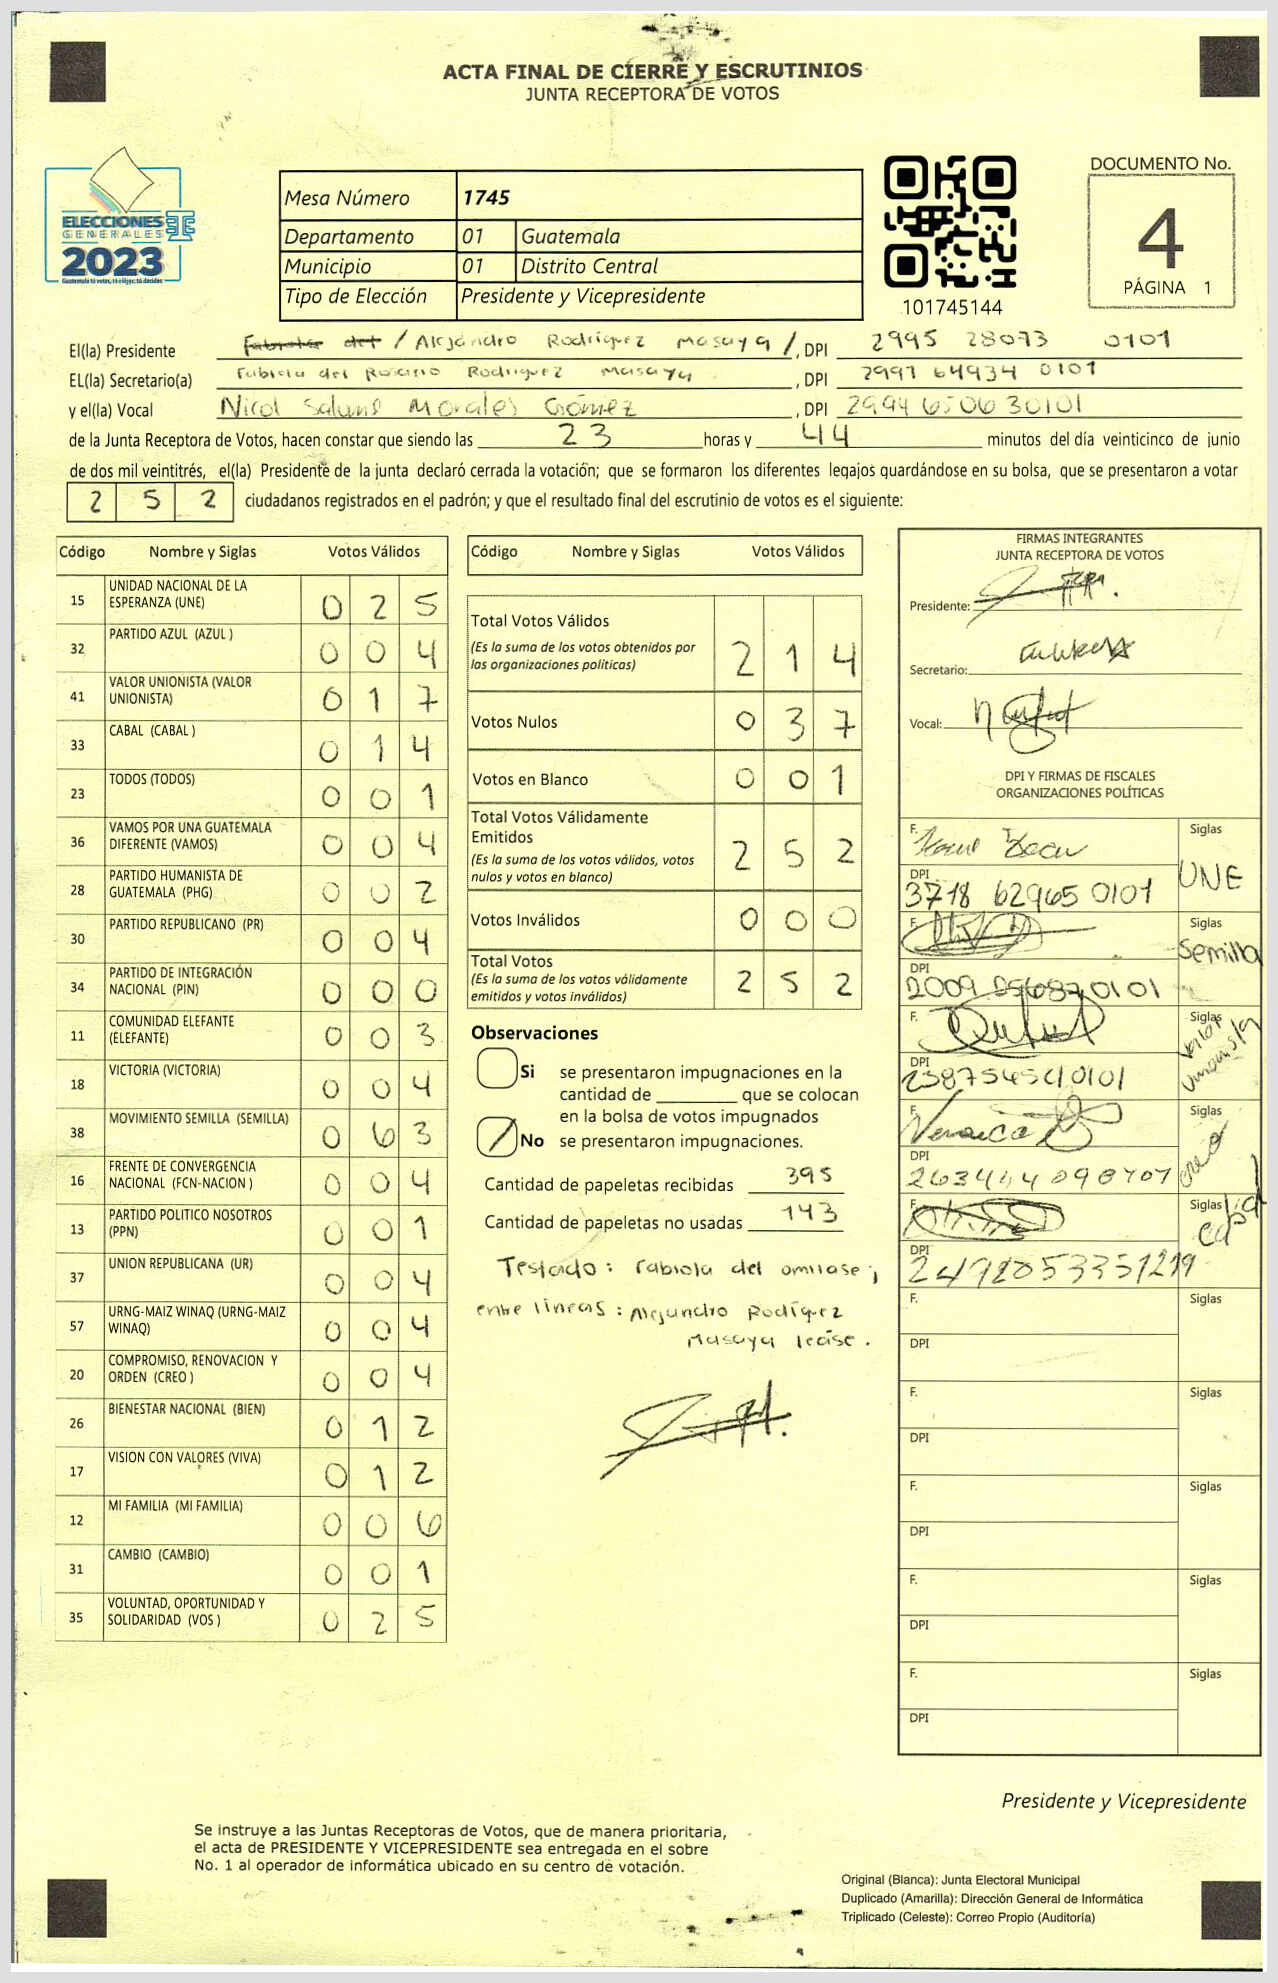 ACTA FINAL DE CIERRE Y ESCRUTINIOS
JUNTA RECEPTORA DE VOTOS
ELECCIONES
GENERALES
2023
Mesa Número 1745
Departamento 01 Guatemala
Municipio 01 Distrito Central
Tipo de Elección Presidente y Vicepresidente
101745144
DOCUMENTO No.
4
PÁGINA 1
El(la) Presidente / Alejandro Rodríguez Masaya /, DPI 2995 28073 0101
EL(la) Secretario(a) Fabiola del Rosario Rodriguez Masaya, DPI 2997 64934 0101
y el(la) Vocal Nicol Salume Morales Gómez, DPI 2994 65063 0101
de la Junta Receptora de Votos, hacen constar que siendo las 23 horas y 44 minutos del día veinticinco de junio
de dos mil veintitrés, el(la) Presidente de la junta declaró cerrada la votación; que se formaron los diferentes legajos quardándose en su bolsa, que se presentaron a votar
2 5 2 ciudadanos registrados en el padrón; y que el resultado final del escrutinio de votos es el siguiente:
Código Nombre y Siglas Votos Válidos
15 UNIDAD NACIONAL DE LA ESPERANZA (UNE) 0 2 5
32 PARTIDO AZUL (AZUL ) 0 0 4
41 VALOR UNIONISTA (VALOR UNIONISTA) 0 1 7
33 CABAL (CABAL ) 0 1 4
23 TODOS (TODOS) 0 0 1
36 VAMOS POR UNA GUATEMALA DIFERENTE (VAMOS) 0 0 4
28 PARTIDO HUMANISTA DE GUATEMALA (PHG) 0 0 2
30 PARTIDO REPUBLICANO (PR) 0 0 4
34 PARTIDO DE INTEGRACIÓN NACIONAL (PIN) 0 0 0
11 COMUNIDAD ELEFANTE (ELEFANTE) 0 0 3
18 VICTORIA (VICTORIA) 0 0 4
38 MOVIMIENTO SEMILLA (SEMILLA) 0 6 3
16 FRENTE DE CONVERGENCIA NACIONAL (FCN-NACION ) 0 0 4
13 PARTIDO POLITICO NOSOTROS (PPN) 0 0 1
37 UNION REPUBLICANA (UR) 0 0 4
57 URNG-MAIZ WINAQ (URNG-MAIZ WINAQ) 0 0 4
20 COMPROMISO, RENOVACION Y ORDEN (CREO ) 0 0 4
26 BIENESTAR NACIONAL (BIEN) 0 1 2
17 VISION CON VALORES (VIVA) 0 1 2
12 MI FAMILIA (MI FAMILIA) 0 0 6
31 CAMBIO (CAMBIO) 0 0 1
35 VOLUNTAD, OPORTUNIDAD Y SOLIDARIDAD (VOS ) 0 2 5
Código Nombre y Siglas Votos Válidos
Total Votos Válidos 2 1 4
(Es la suma de los votos obtenidos por
las organizaciones políticas)
Votos Nulos 0 3 7
Votos en Blanco 0 0 1
Total Votos Válidamente
Emitidos 2 5 2
(Es la suma de los votos válidos, votos
nulos y votos en blanco)
Votos Inválidos 0 0 0
Total Votos 2 5 2
(Es la suma de los votos válidamente
emitidos y votos inválidos)
Observaciones
Si se presentaron impugnaciones en la
cantidad de que se colocan
en la bolsa de votos impugnados
No se presentaron impugnaciones.
Cantidad de papeletas recibidas 395
Cantidad de papeletas no usadas 143
Testado: Fabiola del omitase;
entre líneas: Alejandro Rodíguez
Masaya léase.
FIRMAS INTEGRANTES
JUNTA RECEPTORA DE VOTOS
Presidente:
Secretario:
Vocal:
DPI Y FIRMAS DE FISCALES
ORGANIZACIONES POLÍTICAS
F. Siglas
DPI 3718 62965 0101 UNE
F. Siglas
DPI Semilla
F. Siglas
DPI Valor Unionista
F. Veronica Siglas
DPI creo
F. Siglas
DPI
F. Siglas
DPI
F. Siglas
DPI
F. Siglas
DPI
F. Siglas
DPI
F. Siglas
DPI
Presidente y Vicepresidente
Se instruye a las Juntas Receptoras de Votos, que de manera prioritaria,
el acta de PRESIDENTE Y VICEPRESIDENTE sea entregada en el sobre
No. 1 al operador de informática ubicado en su centro de votación.
Original (Blanca): Junta Electoral Municipal
Duplicado (Amarilla): Dirección General de Informática
Triplicado (Celeste): Correo Propio (Auditoría)